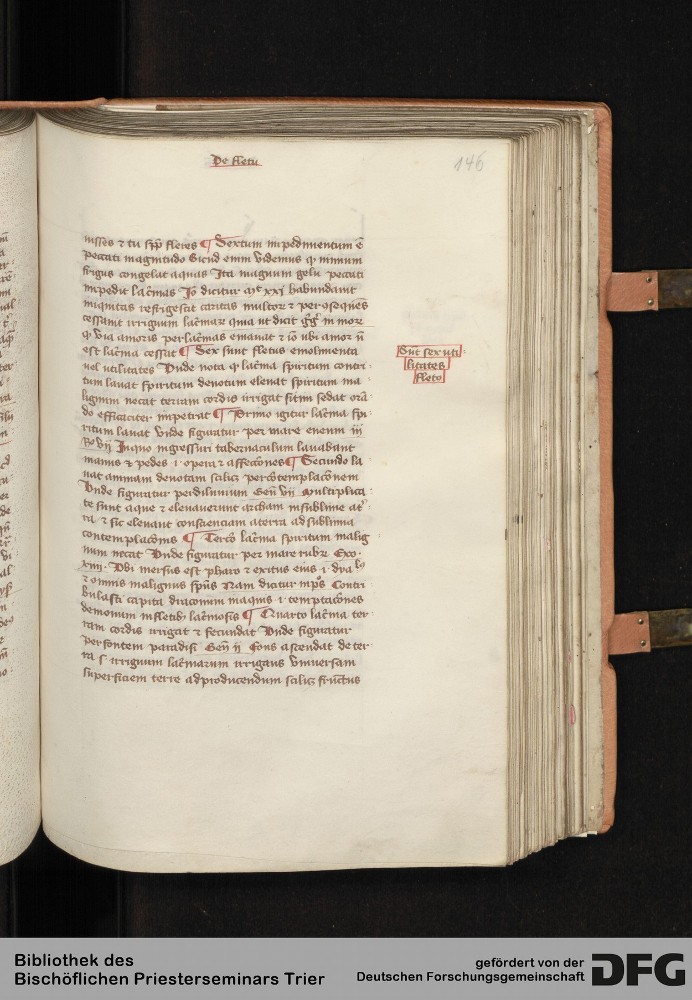 De fletu
146
nisses ⁊ tu spͣ fleres ¶ Sextum inpedimentum ē
peccati magnitudo Sicud enim videmus qꝛ nimium
frigus congelat aquas Ita magnum gelu peccati
inpedit lac̄mas Iō dicitur xxi habundauit
iniquitas refrigescit caritas multoꝝ ⁊ per ꝯseqūes
cessant irriguum lac̄maꝝ quia ut dicit in moꝝ
qꝛ via amoris per lac̄mas emanat ⁊ iō ubi amor n̄
est lac̄ma cessat ¶ Sex sunt fletus emolimenta
uel utilitates Vnde nota qꝛ lac̄ma spiritum contri
tum lauat spiritum deuotum eleuat spiritum ma
lignum necat terram cordis irrigat sitim sedat orā
do efficaciter inpetrat ¶ Primo igitur lac̄ma spi
ritum lauat vnde figuratur per mare eneum iii
vii In quo ingressuri tabernaculum lauabant
manus ⁊ pedes i opera ⁊ affectōnes ¶ Secundo la
uat animam deuotam scilicꝫ per ꝯtemplacōnem
Vnde figuratur per diluuium Geñ vii Multiplica
te sunt aque ⁊ eleuauerunt archam in sublime a t͛
ra ⁊ sic eleuant conscienciam a terra ad sublimia
contemplacōnis ¶ Tercō lac̄ma spiritum malig
num necat Vnde figuratur per mare rubꝝ Exo
xiiii Vbi mersus est pharo ⁊ exitus eius i
⁊ omnis malignus sp̄us Nam dicitur Contri
bulasti capita draconum in aquis i temptacōnes
demonum in fletibꝫ lac̄mosis ¶ Quarto lac̄ma ter
ram cordis irrigat ⁊ fecundat Vnde figuratur
per fontem paradisi Geñ ii Fons ascendat de ter
ra s irriguum lac̄marum irrigans vniuersam
superficiem terre ad producendum scilicꝫ fructus
Sūt sex uti
litates
fletꝰ
Bibliothek des
Bischöflichen Priesterseminars Trier
gefördert von der
Deutschen Forschungsgemeinschaft
DFG